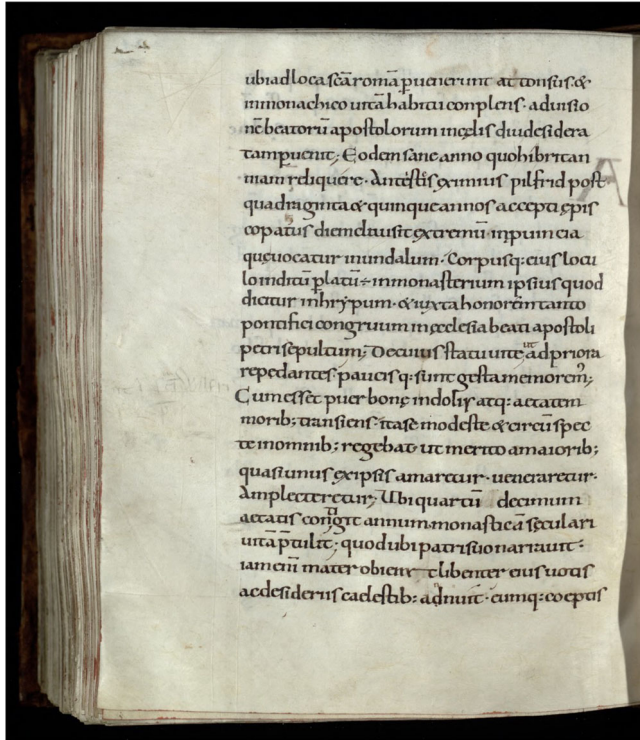 ubi ad loca scā romā puenerunt attonsus &
inmonachico uitā habitu conplens· ad uisio
nē beatorū apostolorum incęlis diu desidera
tam puenit; Eodem sane anno quo hi britan
niam reliquere· Antestis eximius pilfrid post
quadraginta & quinque annos accepti epis
copatus diem clausit extremū· inpuincia
quę uocatur inundalum· Corpusq: eius locu
lo inditū platū÷ inmonasterium ipsius quod
dicitur inhrypum· & iuxta honorem tanto
pontifici congruum inęclesia beati apostoli
petri sepultum; De cuius statu uitę ut ad priora
repedantes· paucis q: sunt gesta memorem;
Cum esset puer bonę indolis atq: aetatem
morib: transiens· ita se modeste & circū spec
te inomnib: regebat· ut merito amaiorib:
quasi unus exipsis amaretur· ueneraretur·
Amplecteretur; Ubi quartū decimum
aetatis contigit annum· monasticā sęculari
uitā ptulit; quod ubi patri suo narrauit·
iam enī mater obierat libenter eius uotis
ac desideriis caelestib: adnuit· eumq: coeptis